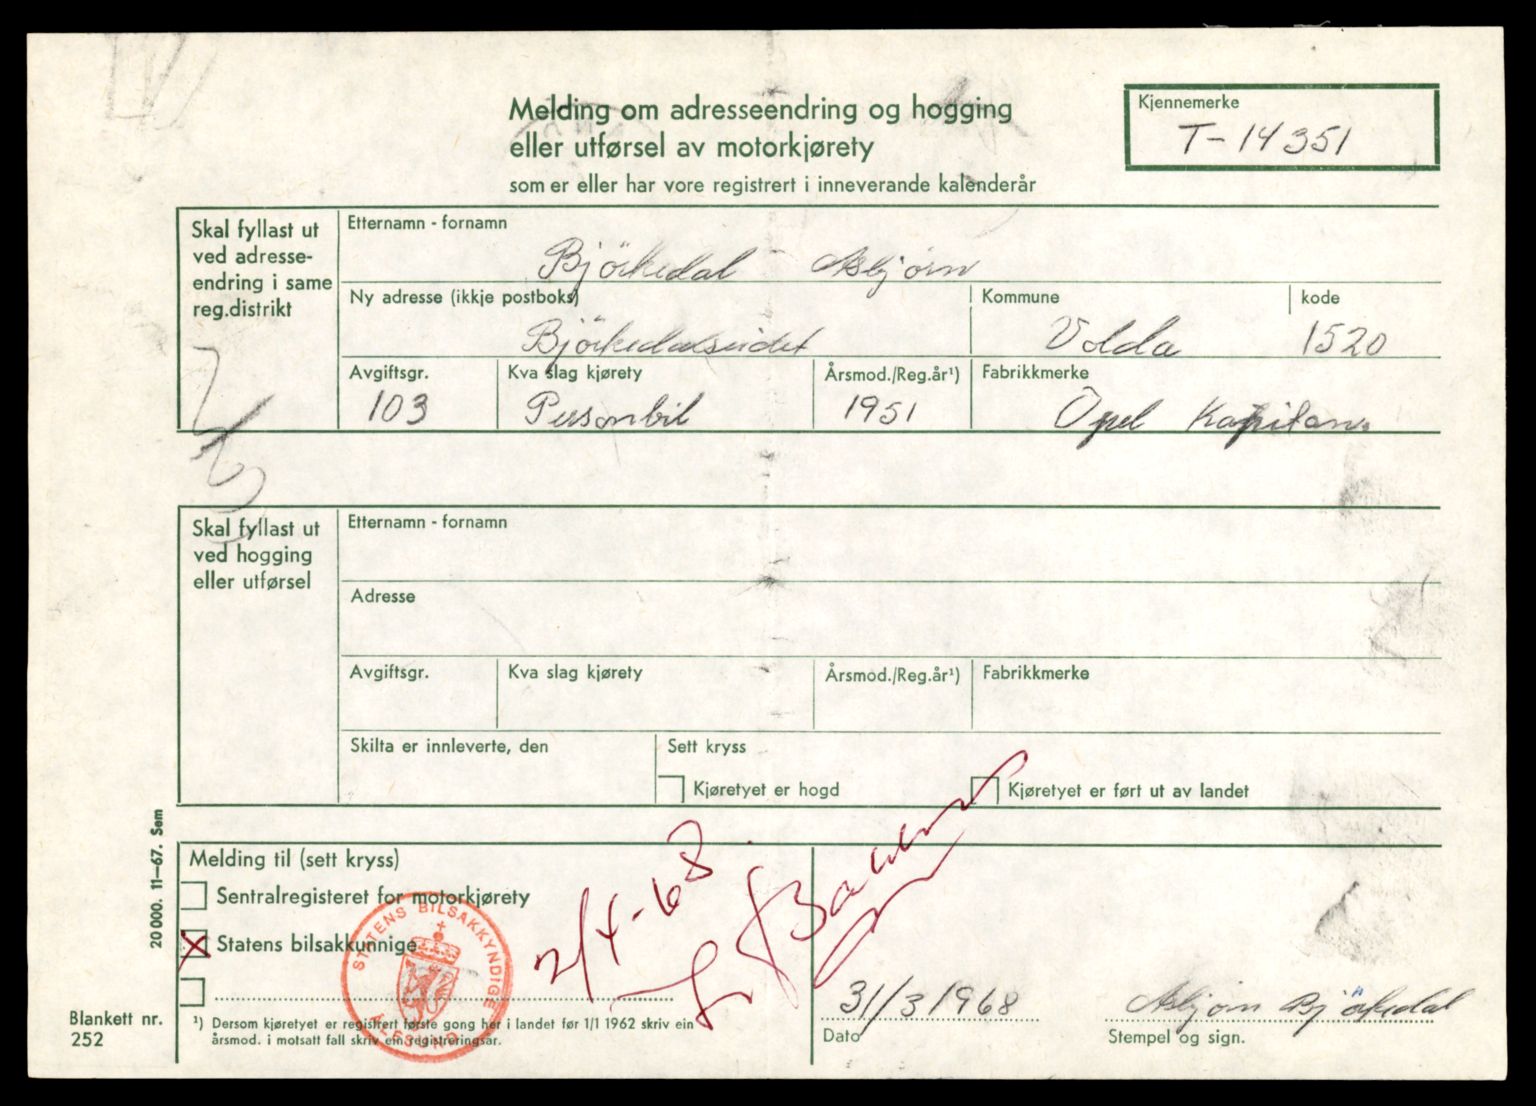 Melding om adresseendring og hogging
eller utførsel av motorkjørety
som er eller har vore registrert i inneverande kalenderår
Kjennemerke
T-14351
Skal fyllast ut
ved adresse-
endring i same
reg.distrikt
Etternamn - fornamn
Björkedal Asbjørn
Ny adresse (ikkje postboks)
Björkedalseidet
Kommune
Volda
kode
1520
Avgiftsgr.
103
Kva slag kjørety
Personbil
Årsmod./Reg.år¹)
1951
Fabrikkmerke
Opel Kapitan
Skal fyllast ut
ved hogging
eller utførsel
Etternamn - fornamn
Adresse
Avgiftsgr.
Kva slag kjørety
Årsmod./Reg.år¹)
Fabrikkmerke
Skilta er innleverte, den
Sett kryss
Kjøretyet er hogd
Kjøretyet er ført ut av landet
Melding til (sett kryss)
Sentralregisteret for motorkjørety
X Statens bilsakkunnige
STATENS BILSAKKYNDIGE
ÅLESUND
2/4-68
31/3 1968
Dato
Asbjørn Björkedal
Stempel og sign.
¹) Dersom kjøretyet er registrert første gong her i landet før 1/1 1962 skriv ein
årsmod. i motsatt fall skriv ein registreringsår.
Blankett nr.
252
20 000. 11—67. Sem